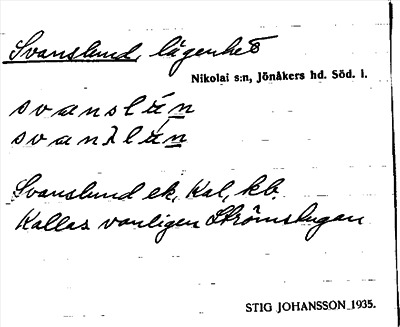 Svanslund, lägenhet
Nikolai s:n, Jönåkers hd. Söd. l.
svanslún
svanλlún
Svanslund ek, Kal, kb.
Kallas vanligen Strömstugan
STIG JOHANSSON 1935.